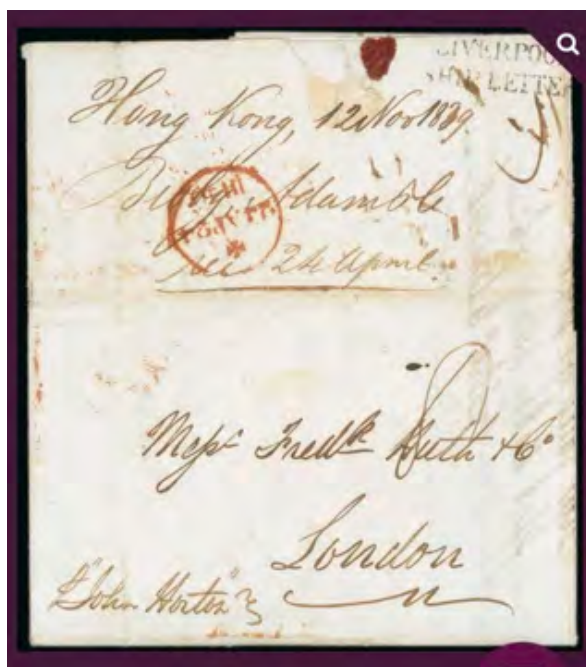 LIVERPOOL
SHIP LETTER
Hong Kong, 12 Nov 1839
24 April
Messrs Fredk Huth & Co
London
"John Horton"